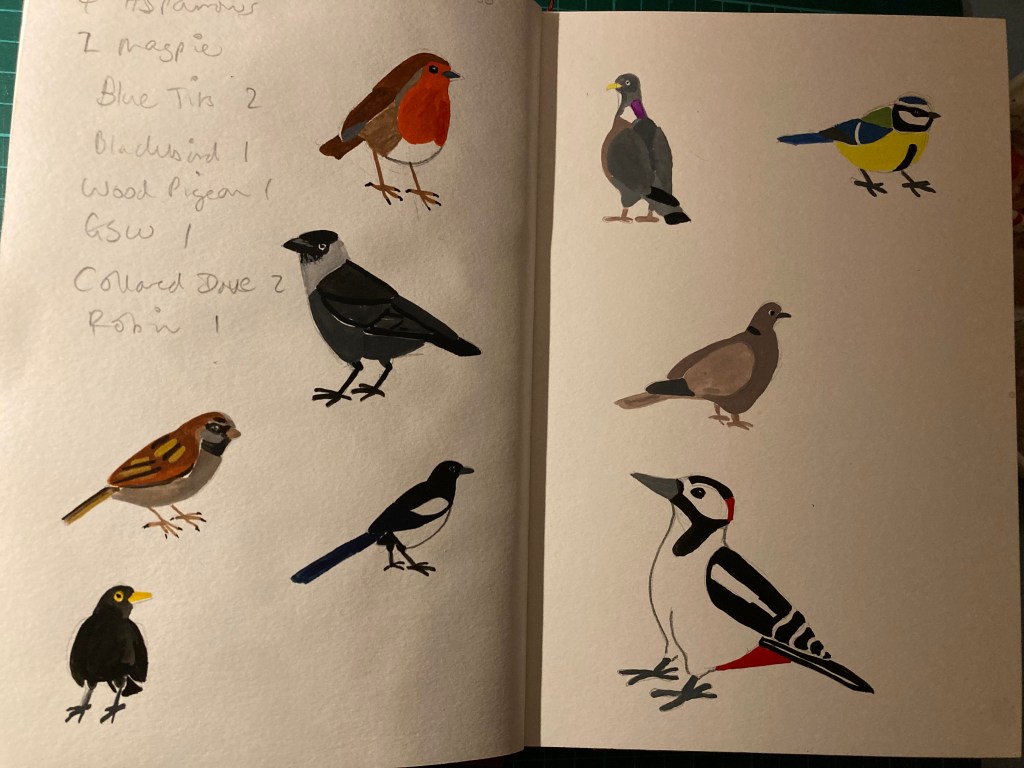 4 HSparrows
2 magpie
Blue Tits 2
Blackbird 1
Wood Pigeon 1
GSW 1
Collared Dove 2
Robin 1